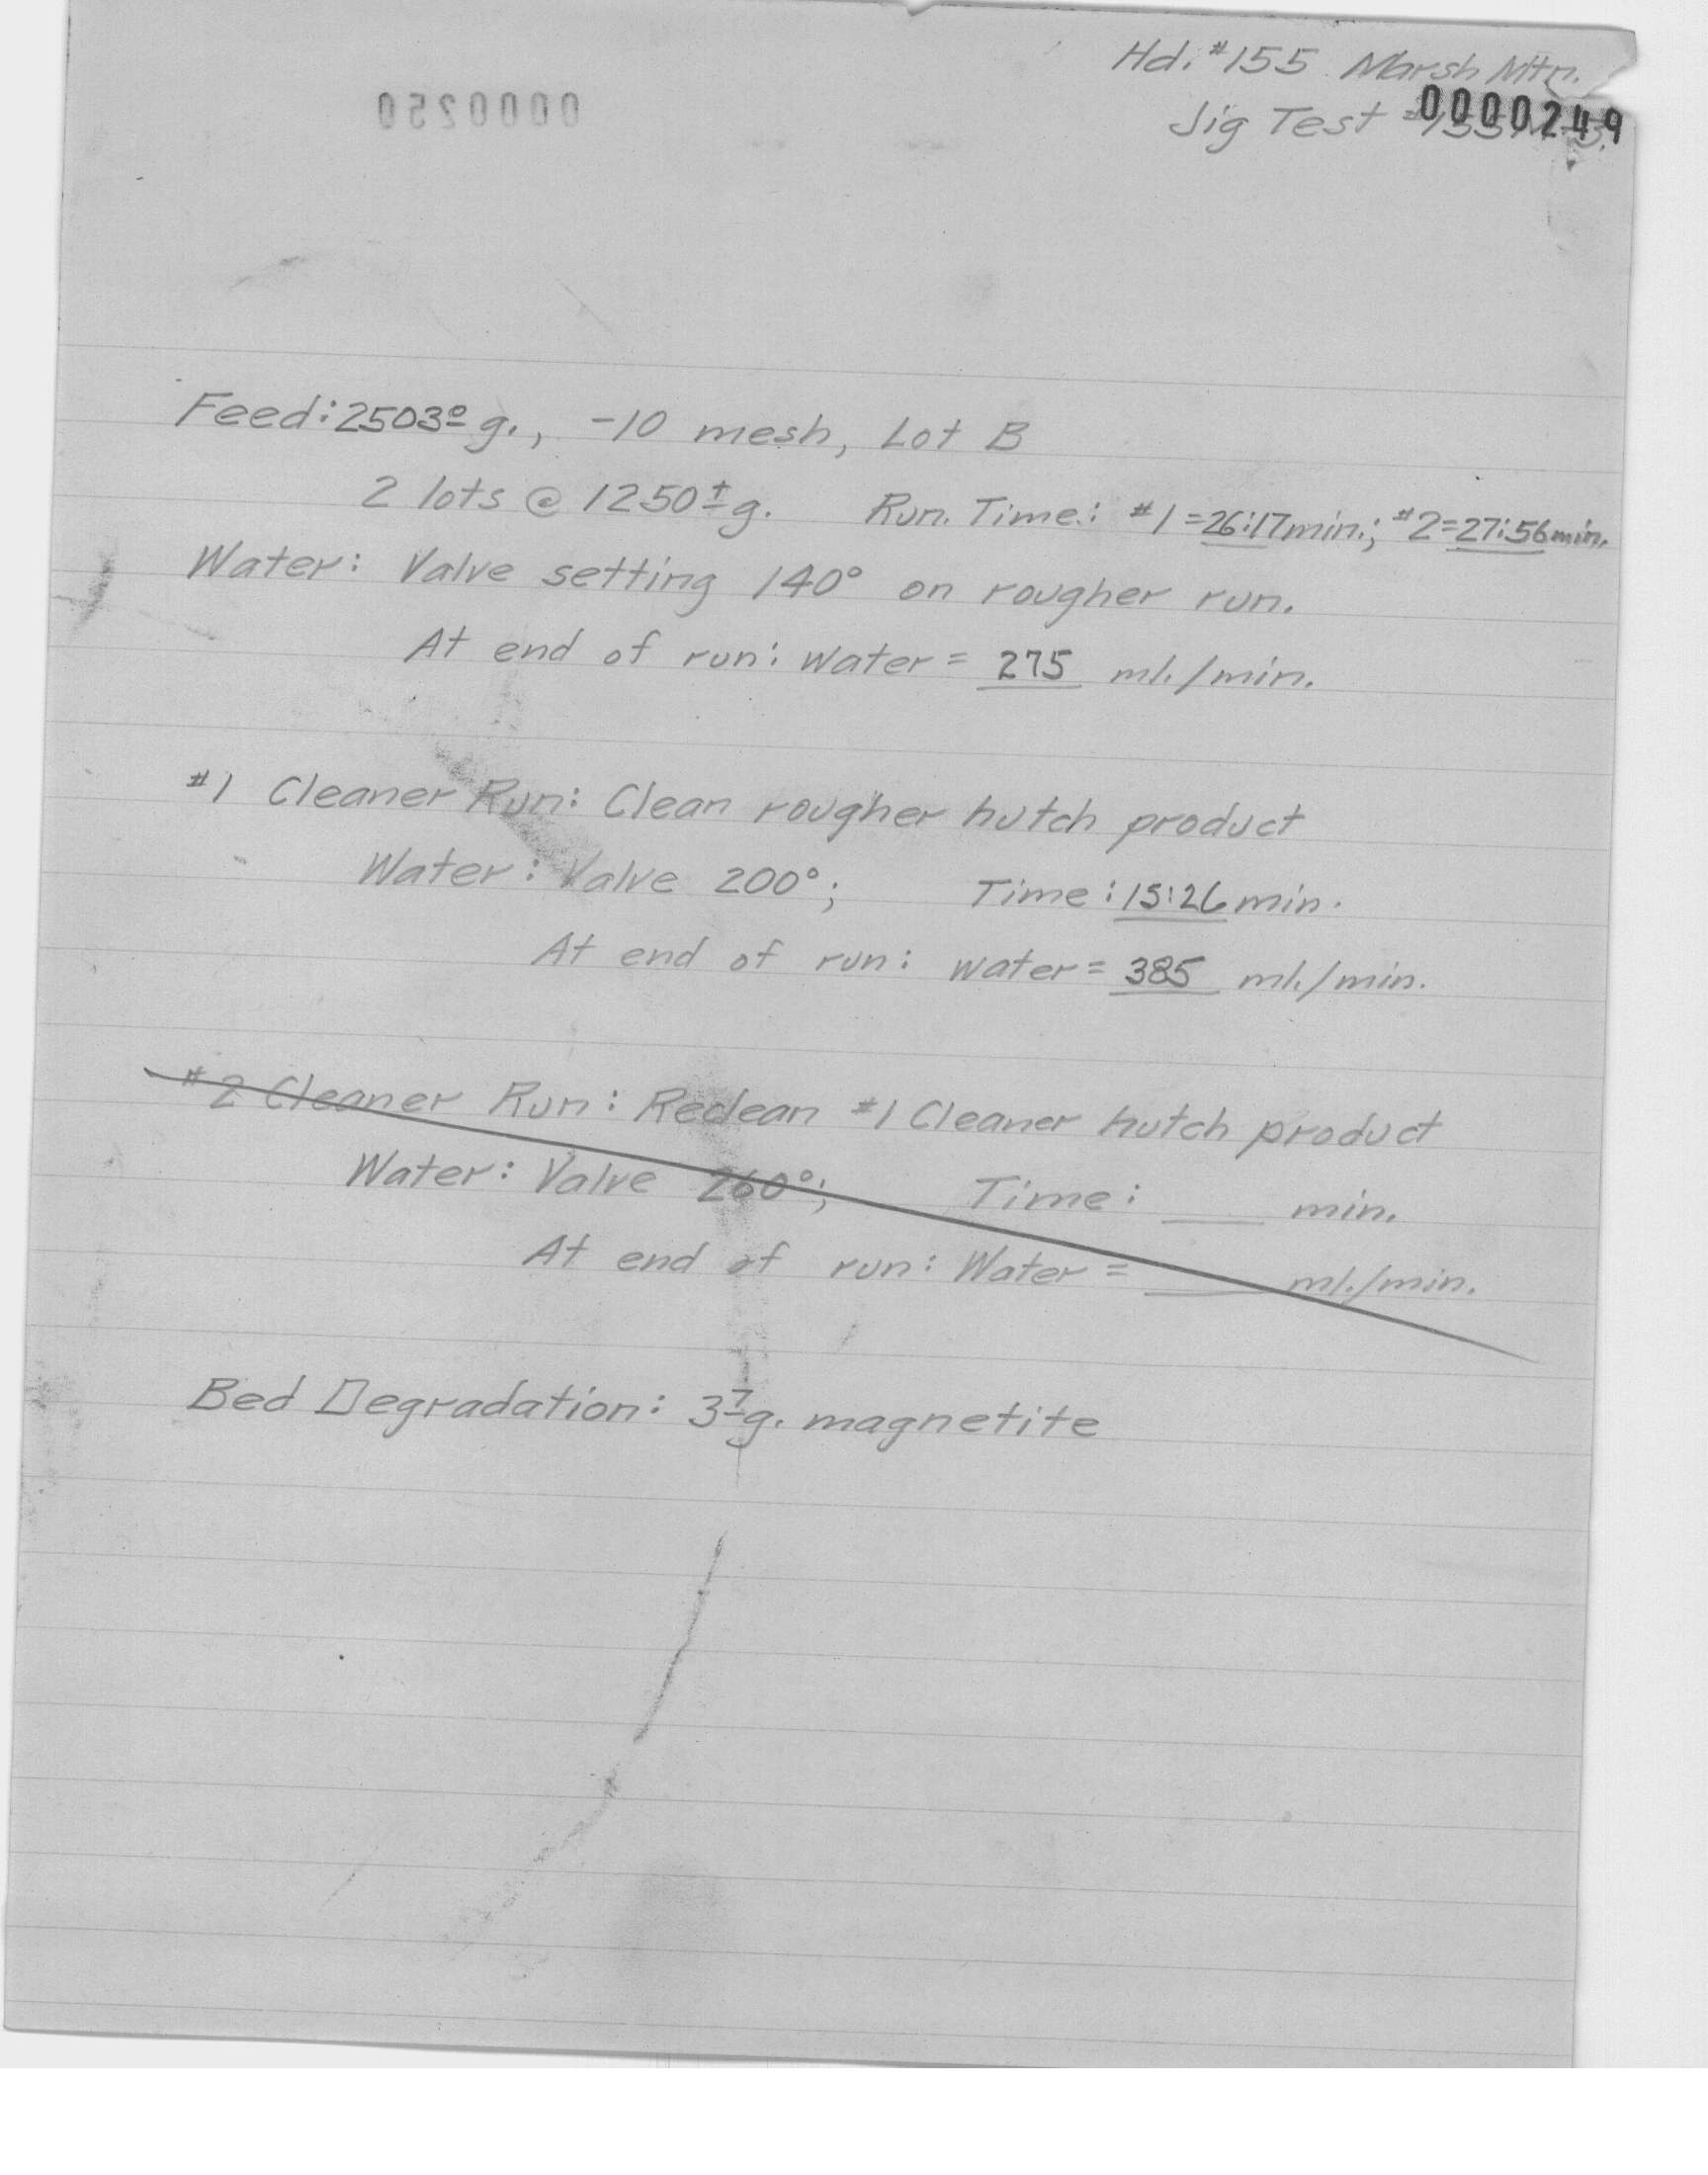 Hd. #155 Marsh Mtn.
0000250
0000249
Jig Test
Feed: 2503⁰ g., -10 mesh, Lot B
2 lots @ 1250± g. Run. Time: #1=26:17 min.; #2=27:56 min.
Water: Valve setting 140° on rougher run.
At end of run: Water = 275 ml./min.
#1 Cleaner Run: Clean rougher hutch product
Water: Valve 200°; Time: 15:26 min.
At end of run: water = 385 ml./min.
#2 Cleaner Run: Reclean #1 Cleaner hutch product
Water: Valve 260°; Time: ___ min.
At end of run: Water = ___ ml./min.
Bed Degradation: 3⁷ g. magnetite